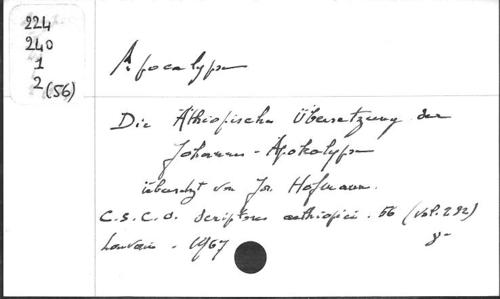 224
240
1
2 (56)
Apocalypse
Die Äthiopische Übersetzung der
Johannes-Apokalypse
übersetzt von Jos. Hofmann.
C.S.C.O. Scriptores aethiopici. 56 (vol. 282)
Louvain - 1967